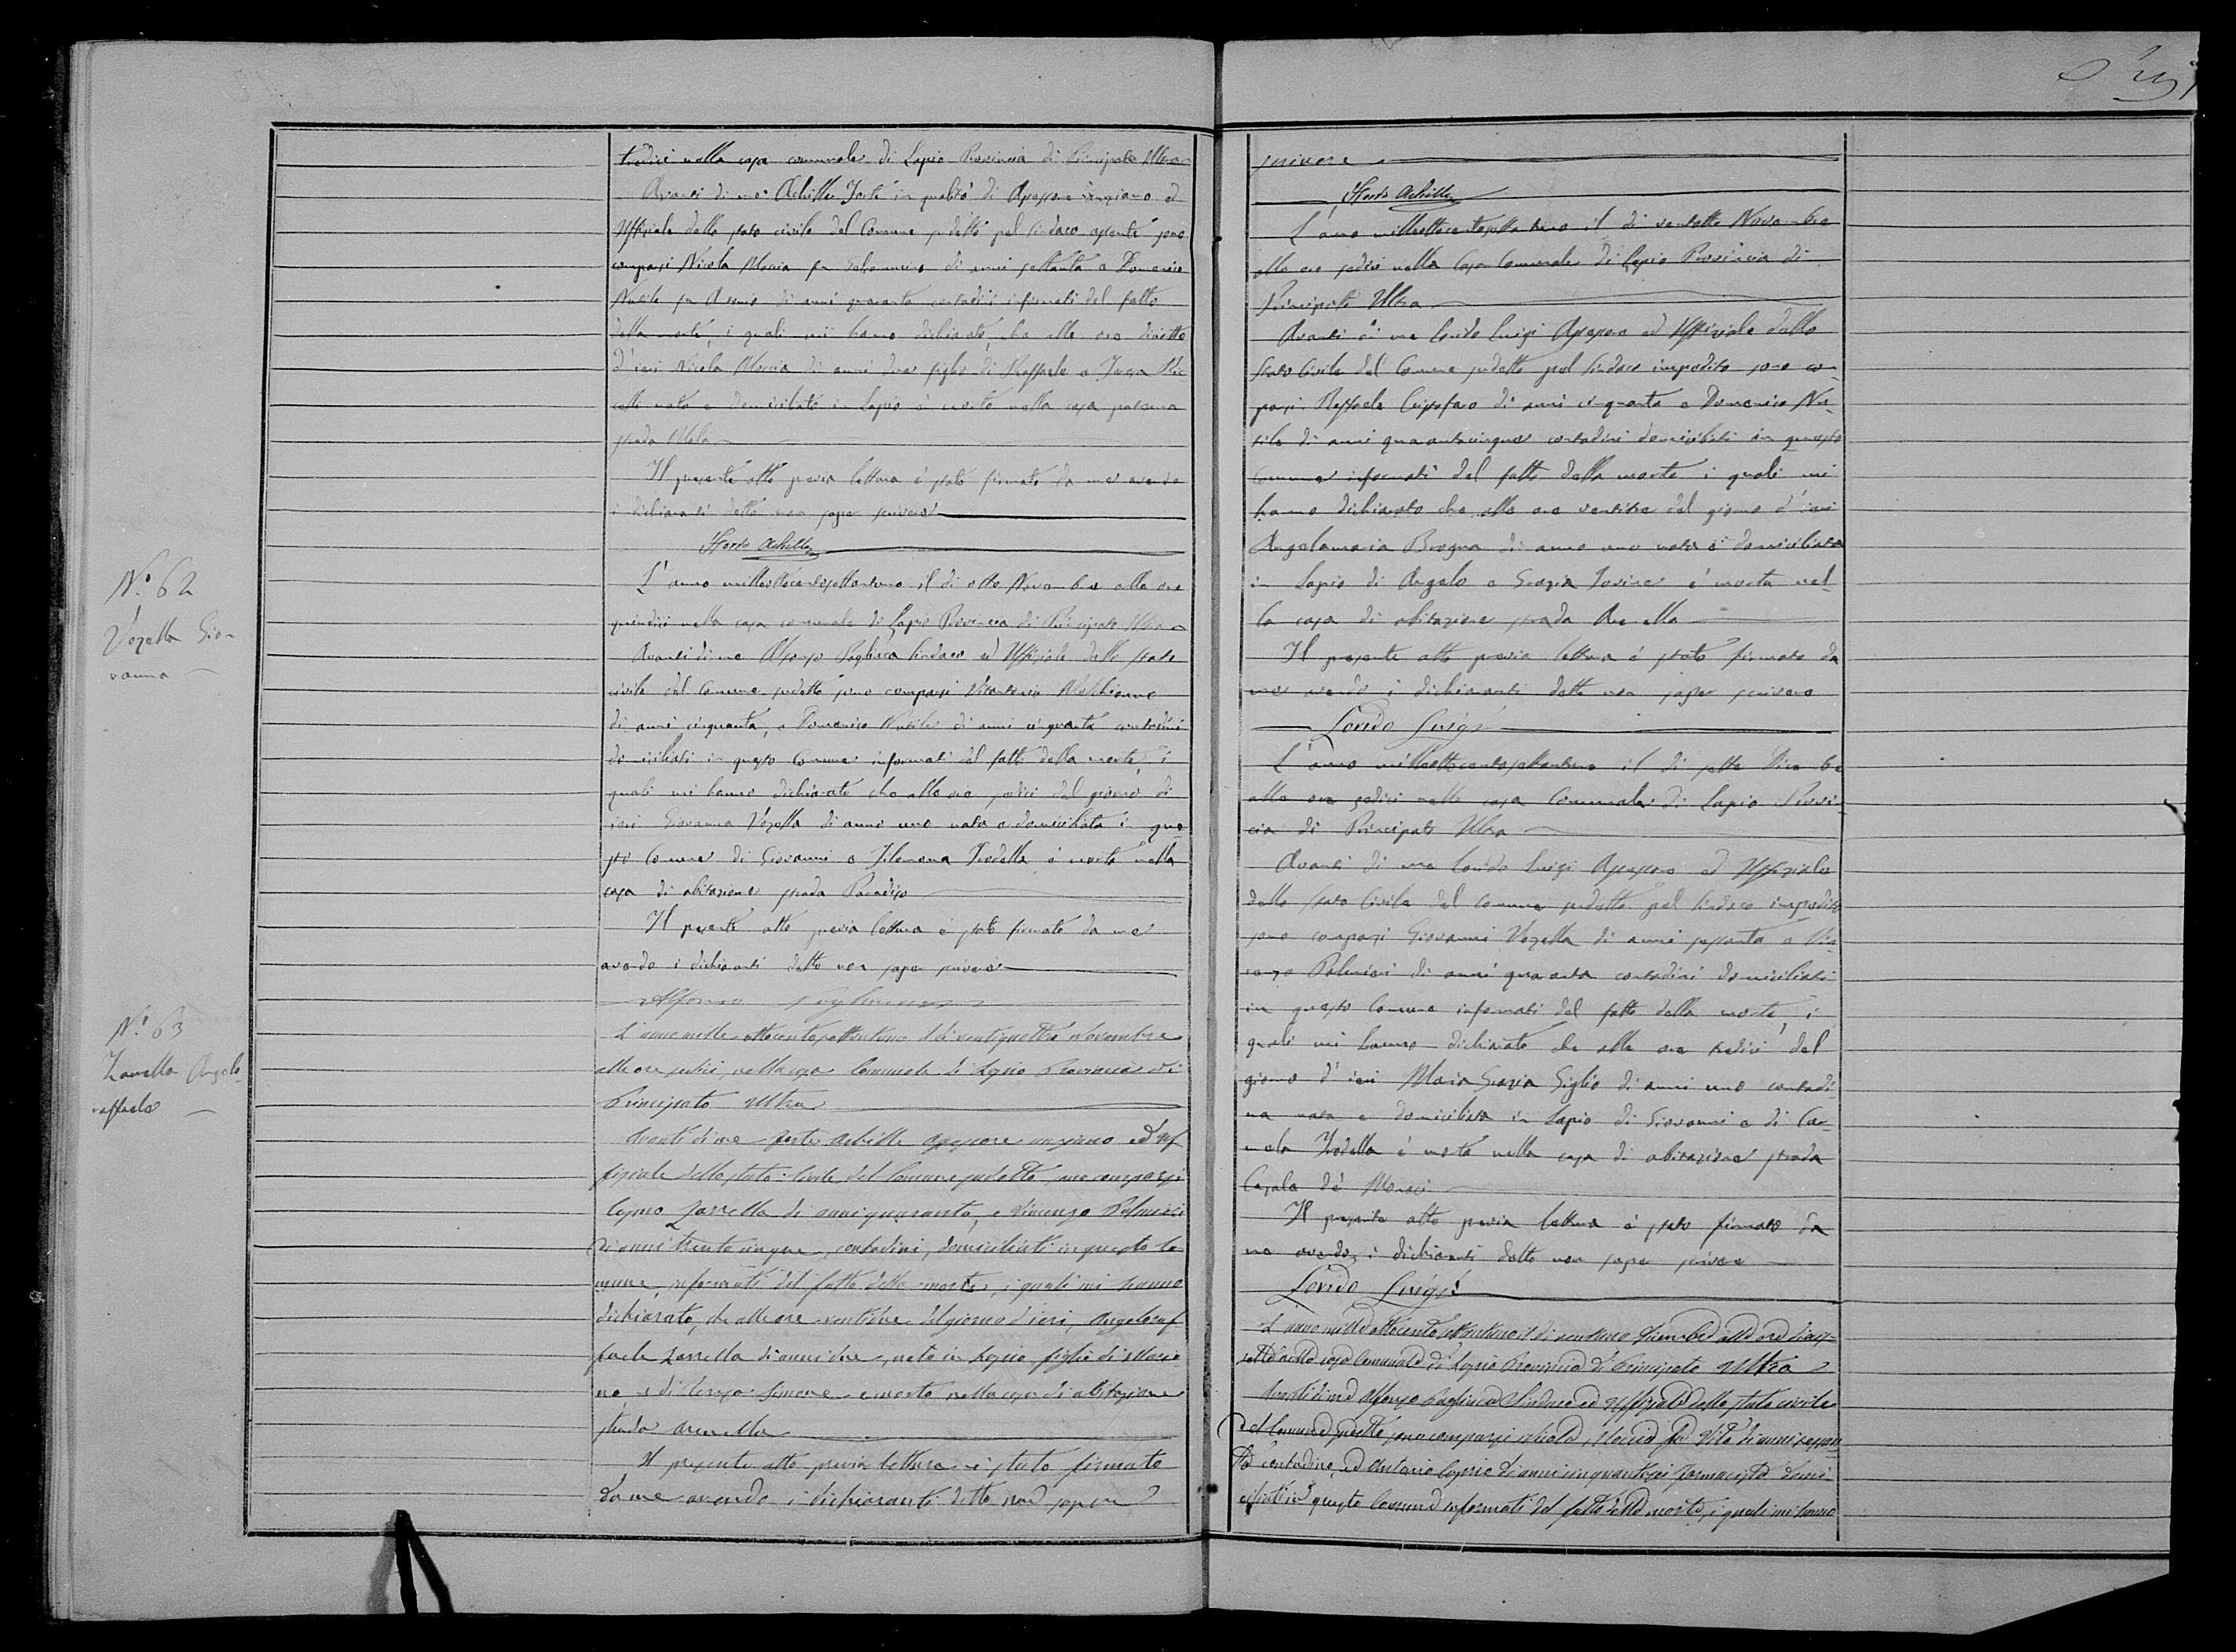 tredici nella casa comunale di Lapio Provincia di Principato Ultra
Avanti di me Achille Forte in qualità di Assessore anziano ed
Uffiziale dello stato civile del Comune sudetto pel Sindaco assente sono
comparsi Nicola Moccia fu di anni settanta e Domenico
di anni quaranta contadini informati del fatto
della morte, i quali mi hanno dichiarato, che alle ore diciotto
d'ieri Nicola Moccia di anni due figlio di Raffaele e
nato e domiciliato in Lapio è morto nella casa paterna
strada
Il presente atto previa lettura è stato firmato da me avendo
i dichiaranti detto non saper scrivere
Forte Achille
N.º 62
Vozella Gio-
vanna
L'anno milleottocentosettantuno il dì otto Novembre alle ore
quindici nella casa comunale di Lapio Provincia di Principato Ultra
Avanti di me Alfonso Pagliuca Sindaco ed Uffiziale dello stato
civile del Comune sudetto sono comparsi
di anni cinquanta, e Domenico di anni cinquanta contadini
domiciliati in questo Comune informati del fatto della morte, i
quali mi hanno dichiarato che alle ore sedici del giorno di
ieri Giovanna Vozella di anni uno nata e domiciliata in que-
sto Comune di Giovanni e Filomena Trodella è morta nella
casa di abitazione strada Paradiso
Il presente atto previa lettura è stato firmato da me
avendo i dichianti detto non saper scrivere
Alfonso Pagliuca
N.º 63
Zarrella Angelo
raffaele
L'anno mille ottocentosettantuno il dì ventiquattro novembre
alle ore sedici, nella casa Comunale di Lapio Provincia di
Principato Ultra
Avanti di me Forte Achille assessore anziano ed Uf
fiziale dello stato Civile del Comune sudetto, sono comparsi
Zarrella di anni quaranta, e Vincenzo Palmieri
di anni trentacinque, contadini, domiciliati in questo Co
mune, informati del fatto della morte, i quali mi hanno
dichiarato, che alle ore ventidue del giorno d'ieri, Angeloraf
faele Zarrella di anni due, nato in Lapio figlio di
no, e di Simone è morto nella casa di abitazione
strada Arenella
Il presente atto previa lettura è stato firmato
da me avendo i dichiaranti detto non saper
scrivere
Forte Achille
L'anno milleottocentosettantuno il dì ventotto Novembre
alle ore sedici nella Casa Comunale di Lapio Provincia di
Principato Ultra
Avanti di me Loredo Luigi Assessore ed Uffiziale dello
Stato Civile del Comune sudetto pel Sindaco impedito sono com-
parsi Raffaele di anni cinquanta e Domenico
di anni quarantacinque contadini domiciliati in questo
Comune informati del fatto della morte i quali mi
hanno dichiarato che alle ore ventitre del giorno d'ieri
Angelamaria Brogna di anno uno nata e domiciliata
in Lapio di Angelo e Grazia Iovine è morta nel-
la casa di abitazione strada Arenella
Il presente atto previa lettura è stato firmato da
me avendo i dichiaranti detto non saper scrivere
Loredo Luigi
L'anno milleottocentosettantuno il dì sette Dicembre
alle ore sedici nella casa Comunale di Lapio Provin-
cia di Principato Ultra
Avanti di me Loredo Luigi Assessore ed Uffiziale
dello Stato Civile del Comune sudetto pel Sindaco impedito
sono comparsi Giovanni Vozella di anni sessanta e Vin-
cenzo Palmieri di anni quaranta contadini domiciliati
in questo Comune informati del fatto della morte, i
quali mi hanno dichiarato che alle ore tredici del
giorno d'ieri Maria Grazia Giglio di anni uno contadi-
na nata e domiciliata in Lapio di Giovanni e di Car-
mela Trodella è morta nella casa di abitazione strada
Casale de'
Il presente atto previa lettura è stato firmato da
me avendo i dichiaranti detto non saper scrivere
Loredo Luigi
L'anno mille ottocento settantuno il dì ventuno Dicembre alle ore dicias-
sette nella casa Comunale di Lapio Provincia di Principato Ultra
Avanti di me Alfonso Pagliuca Sindaco ed Uffiziale dello stato civile
del Comune sudetto sono comparsi Nicola Moccia fu Vito di anni sessan
ta contadino, ed Antonio di anni cinquantasei farmacista domi
ciliati in questo Comune informati del fatto della morte, i quali mi hanno